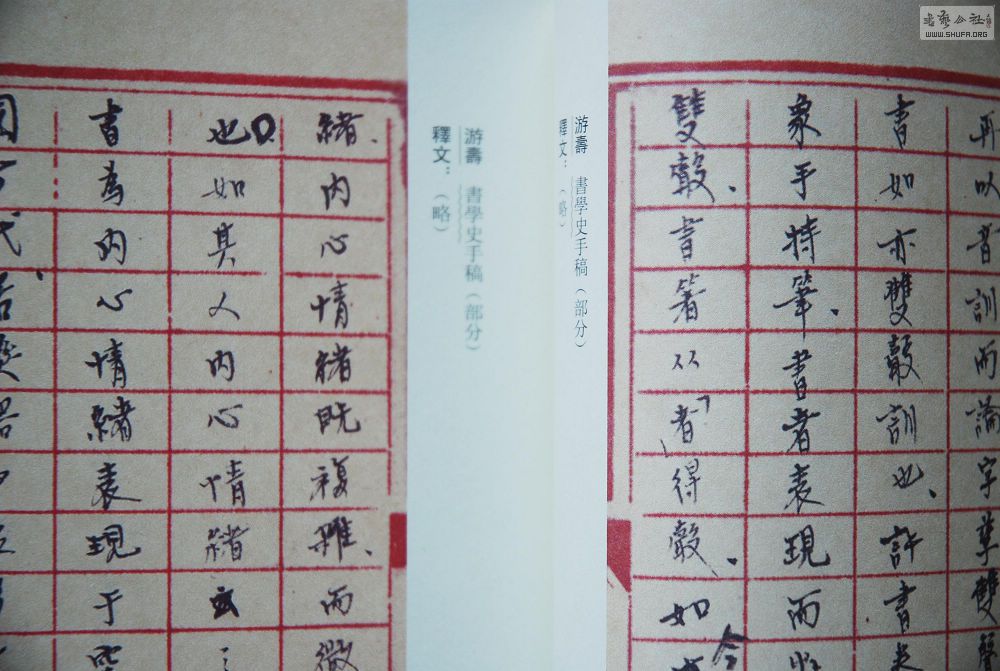 再以音訓而論字孳雙
書如亦雙聲訓也、許書
象手持筆、書者表現而
雙聲、書箸从「者」得聲、如
游壽 書學史手稿（部分）
釋文：（略）
游壽 書學史手稿（部分）
釋文：（略）
緒、內心情緒既複雜、而微
也。如其人內心情緒
書為內心情緒表現于
書藝公社
WWW.SHUFA.ORG